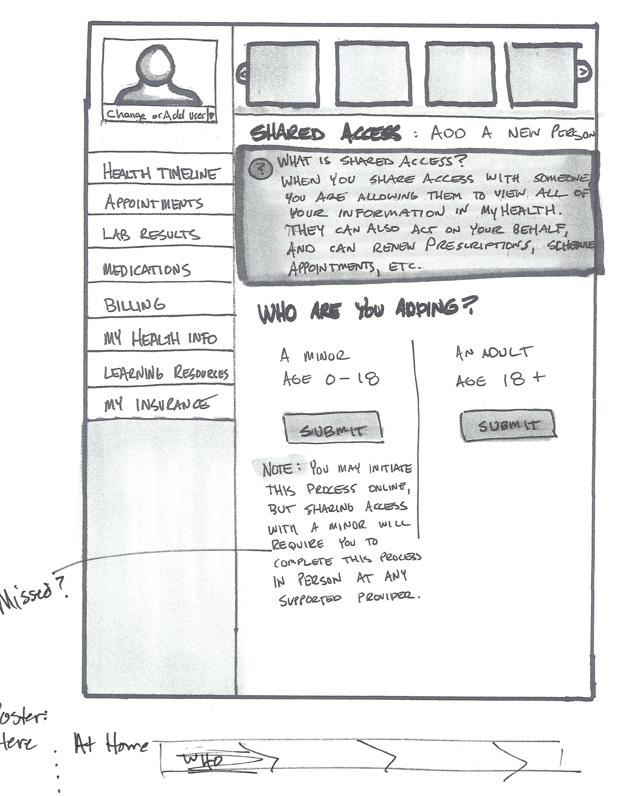 Change or Add user
HEALTH TIMELINE
APPOINTMENTS
LAB RESULTS
MEDICATIONS
BILLING
MY HEALTH INFO
LEARNING RESOURCES
MY INSURANCE
SHARED ACCESS : ADD A NEW PERSON
? WHAT IS SHARED ACCESS?
WHEN YOU SHARE ACCESS WITH SOMEONE,
YOU ARE ALLOWING THEM TO VIEW ALL OF
YOUR INFORMATION IN MYHEALTH.
THEY CAN ALSO ACT ON YOUR BEHALF,
AND CAN RENEW PRESCRIPTIONS, SCHEDULE
APPOINTMENTS, ETC.
WHO ARE YOU ADDING?
A MINOR
AGE 0-18
SUBMIT
NOTE: YOU MAY INITIATE
THIS PROCESS ONLINE,
BUT SHARING ACCESS
WITH A MINOR WILL
REQUIRE YOU TO
COMPLETE THIS PROCESS
IN PERSON AT ANY
SUPPORTED PROVIDER.
AN ADULT
AGE 18+
SUBMIT
Missed?
At Home
WHO